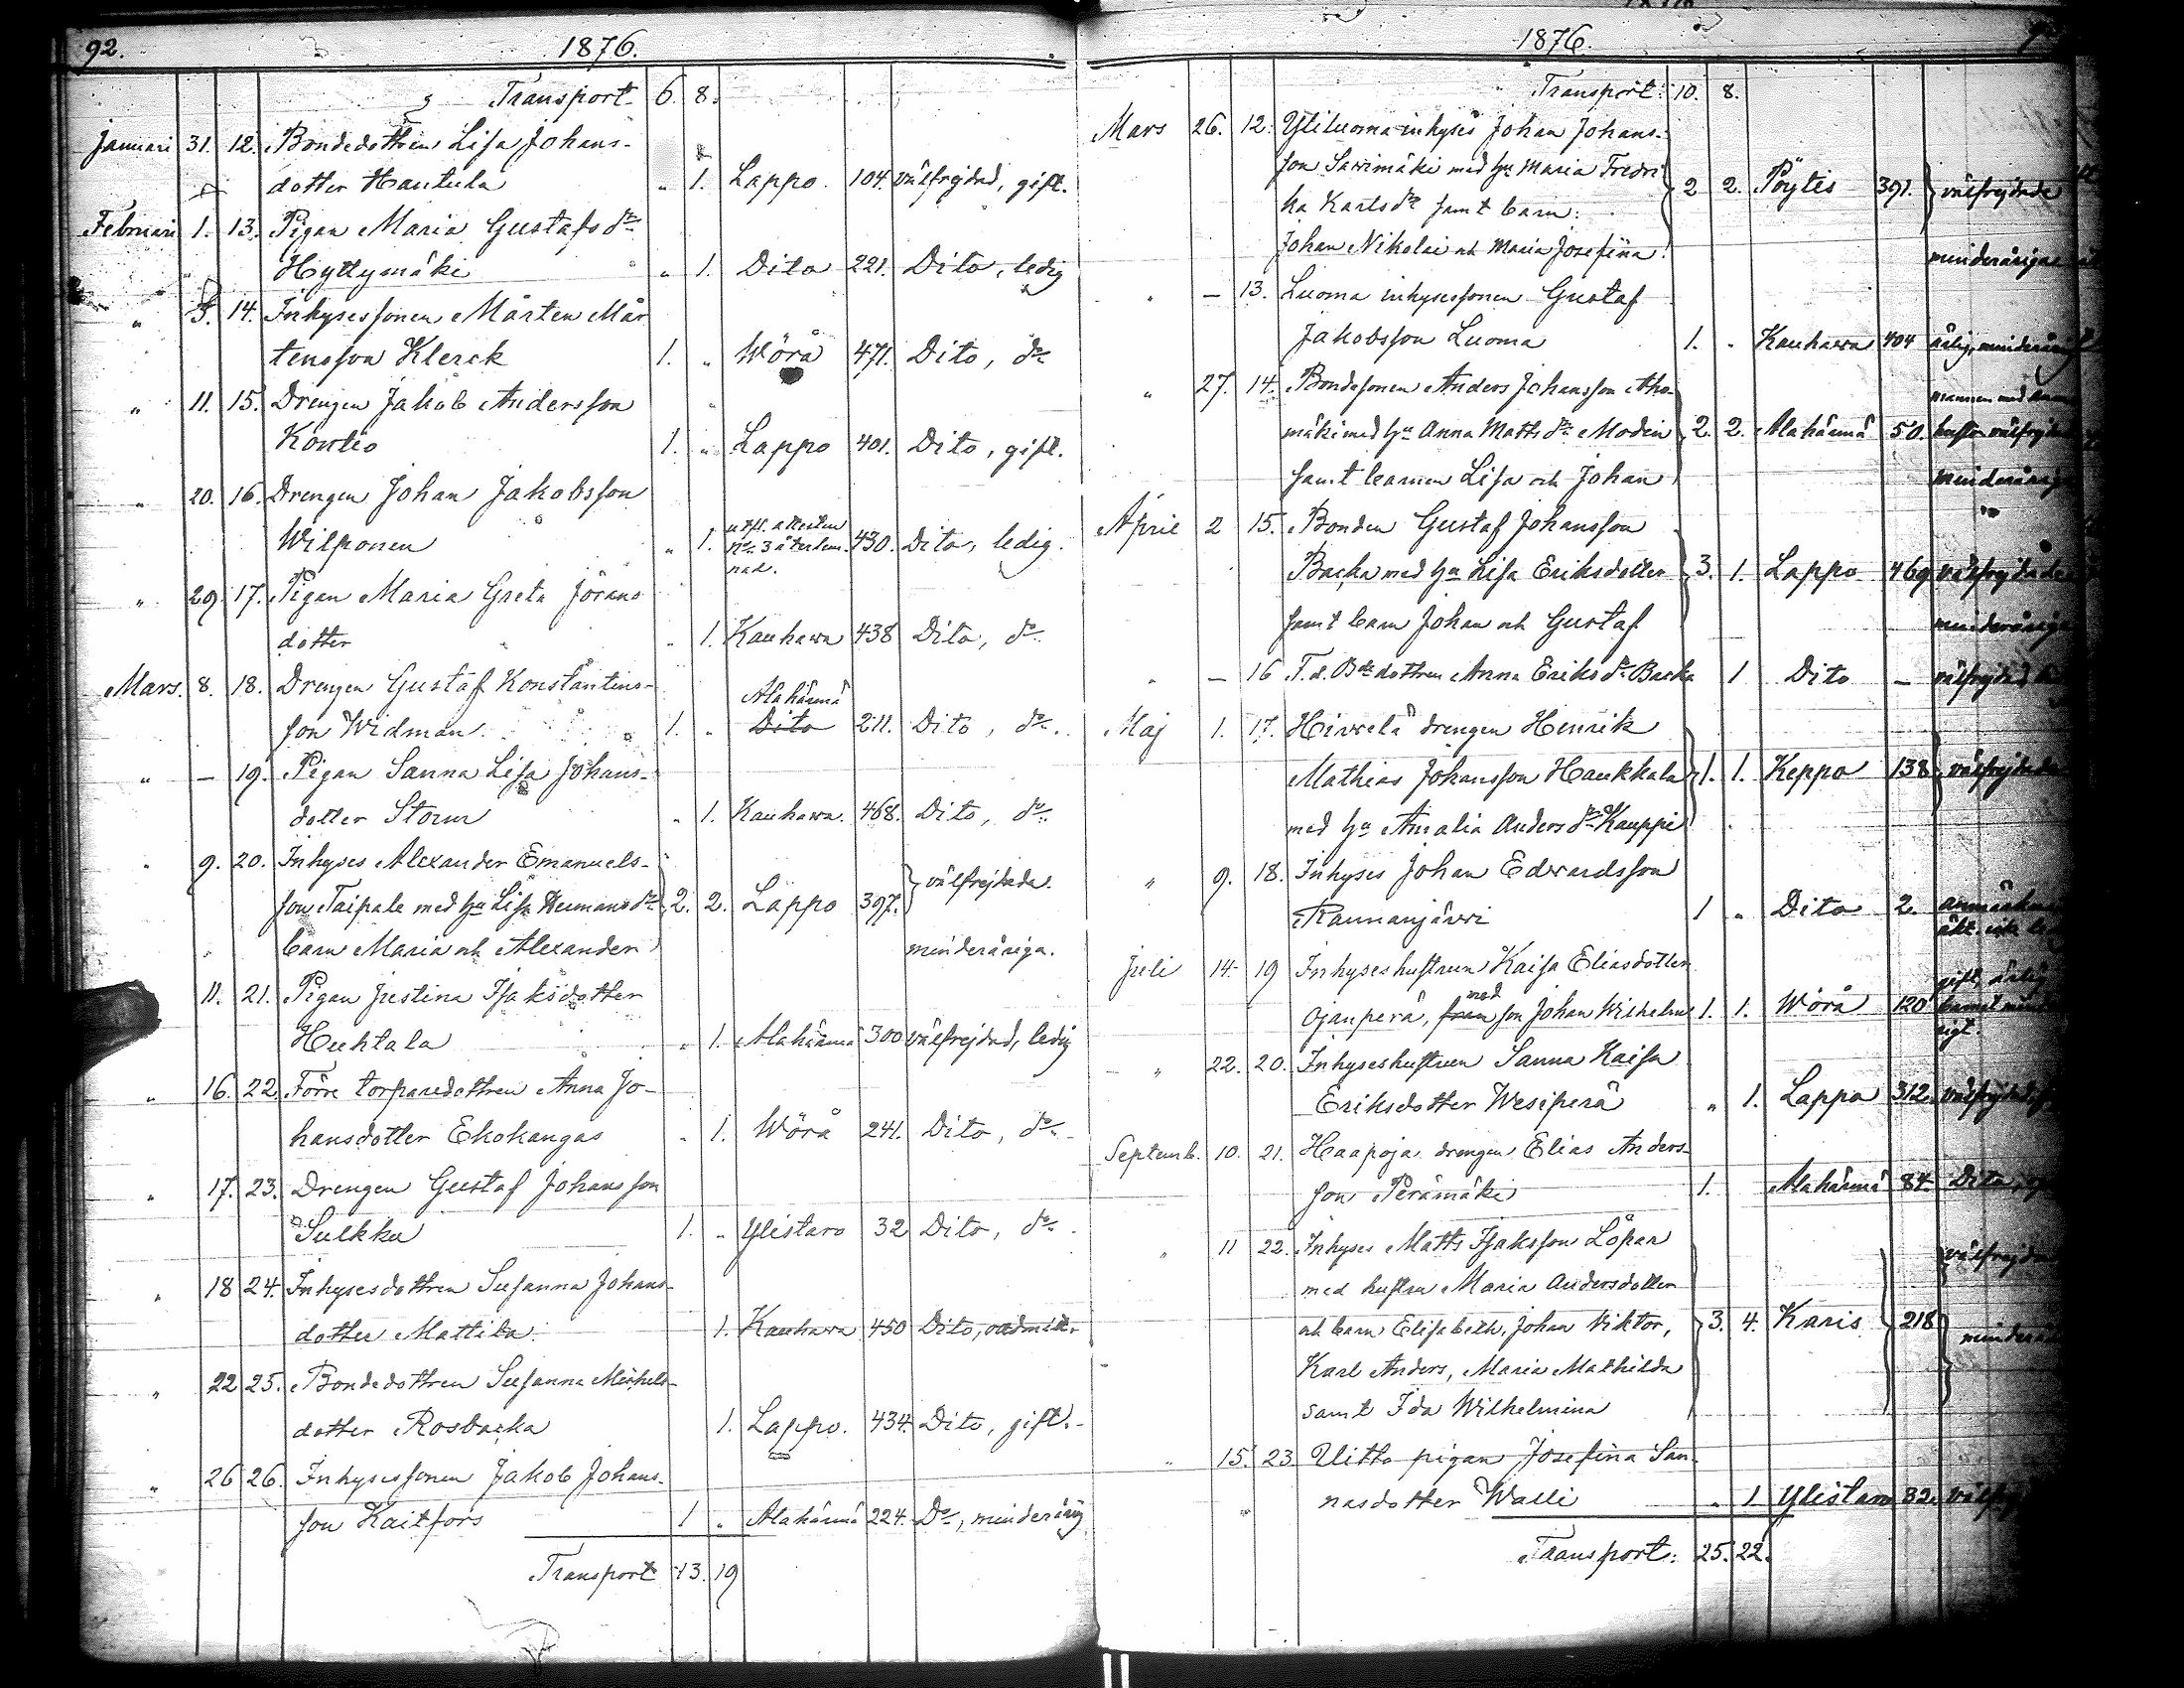 92. 1876.
Transport 6. 8.
Januari 31. 12. Bondedottren Lisa Johans-
dotter Hautula " 1. Lappo. 104. välfrejdad, gift.
Februari 1. 13. Pigan Maria Gustafs dr
Hyttymäki " 1. Dito 221. Dito, ledig
" 3. 14. Inhysessonen Mårten Mår
tensson Klerck 1. " Wörå 471. Dito, do
" 11. 15. Drengen Jakob Andersson
Kontio 1. " Lappo 401. Dito, gift.
" 20. 16. Drengen Johan Jakobsson
Wilponen " 1. No. 3 återlem- 430. Dito, ledig.
nad.
" 29. 17. Pigan Maria Greta Jörans
dotter " 1. Kauhawa 438 Dito, do
Mars. 8. 18. Drengen Gustaf Konstantins- Alahärmä
son Widman. 1. " Dito 211. Dito, do.
" — 19. Pigan Sanna Lisa Johans-
dotter Storm " 1. Kauhawa. 468. Dito, do.
" 9. 20. Inhyses Alexander Emanuels-
son Taipale med hu Lisa Hermans dr 2. 2. Lappo 397. välfrejdade.
barn Maria och Alexander minderåriga.
11. 21. Pigan Justina Isaksdotter
Huhtala " 1. Alahärmä 300 välfrejdad, ledig
" 16. 22. Förre torparedottren Anna Jo-
hansdotter Ekokangas " 1. Wörå 241. Dito, do.
" 17. 23. Drengen Gustaf Johansson
Sulkku 1. " Ylistaro 32 Dito, do.
" 18 24. Inhysesdottren Susanna Johans-
dotter Mattila. 1. Kauhava 450 Dito, oadmit.
" 22 25. Bondedottren Susanna Michels-
dotter Rosbacka 1. Lappo. 434. Dito, gift.
" 26 26. Inhysessonen Jakob Johans-
son Kaitfors 1 " Alahärmä 224. Do, minderårig
Transport 13. 19
1876.
Transport: 10. 8.
Mars 26. 12. Yliluoma inhyses Johan Johans-
son Sarvimäki med hu Maria Fredri
ka Karls dr samt barn: 2 2. Pöytis 391. välfrejdade
Johan Nikolai och Maria Josefina. minderåriga
" — 13. Luoma inhysessonen Gustaf
Jakobsson Luoma 1. " Kauhawa 404
" 27. 14. Bondesonen Anders Johansson Aho-
mäki med hu Anna Matts dr Modin 2. 2. Alahärmä 50.
samt barnen Lisa och Johan
April 2 15. Bonden Gustaf Johansson
Backa med hu Lisa Eriksdotter 3. 1. Lappo 469 välfrejdade
samt barn Johan och Gustaf
" — 16 F. d. Bdedottren Anna Eriks dr Backa 1 Dito —
Maj 1. 17. Hivvelä drengen Henrik
Mathias Johansson Haukkala 1. 1. Keppo 138
med hu Amalia Anders dr Kauppi
" 9. 18. Inhyses Johan Edvardsson
Raunanjärvi 1 " Dito 2.
Juli 14. 19 Inhyseshustrun Kaisa Eliasdotter
med
Ojanperä, från son Johan Wilhelm 1. 1. Wörå 120
" 22. 20. Inhyseshustrun Sanna Kaisa
Eriksdotter Wesiperä " 1. Lappo 312.
Septemb. 10. 21. Haapoja drengen Elias Anders-
son Perämäki 1. Alahärmä 84.
" 11 22. Inhyses Matts Isaksson Löpar
med hustru Maria Andersdotter
och barn Elisabeth, Johan Viktor, 3. 4. Karis 218
Karl Anders, Maria Mathilda
samt Ida Wilhelmina
" 15. 23. Uitto pigan Josefina San-
nasdotter Walli " 1 Ylistaro 32.
Transport: 25. 22.